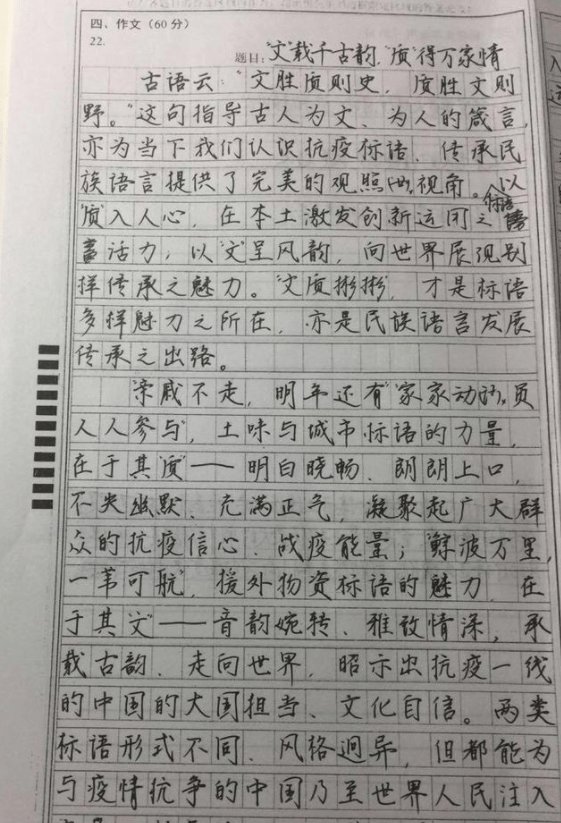 四、作文(60分)
22.
题目:“文”载千古韵,“质”得万家情
古语云:“文胜质则史,质胜文则
野。”这句指导古人为文、为人的箴言,
亦为当下我们认识抗疫标语、传承民
族语言提供了完美的观照视角。以
“质”入人心,在本土激发创新运用之标语
蓄活力;以“文”呈风韵,向世界展现别
样传承之魅力。“文质彬彬”,才是标语
多样魅力之所在,亦是民族语言发展
传承之出路。
“亲戚不走,明年还有”“家家动员,
人人参与”,土味与城市标语的力量,
在于其“质”——明白晓畅、朗朗上口,
不失幽默、充满正气,凝聚起广大群
众的抗疫信心、战疫能量;“鲸波万里,
一苇可航”,援外物资标语的魅力,在
于其“文”——音韵婉转、雅致情深,承
载古韵、走向世界,昭示出抗疫一线
的中国的大国担当、文化自信。两类
标语形式不同、风格迥异,但都能为
与疫情抗争的中国乃至世界人民注入